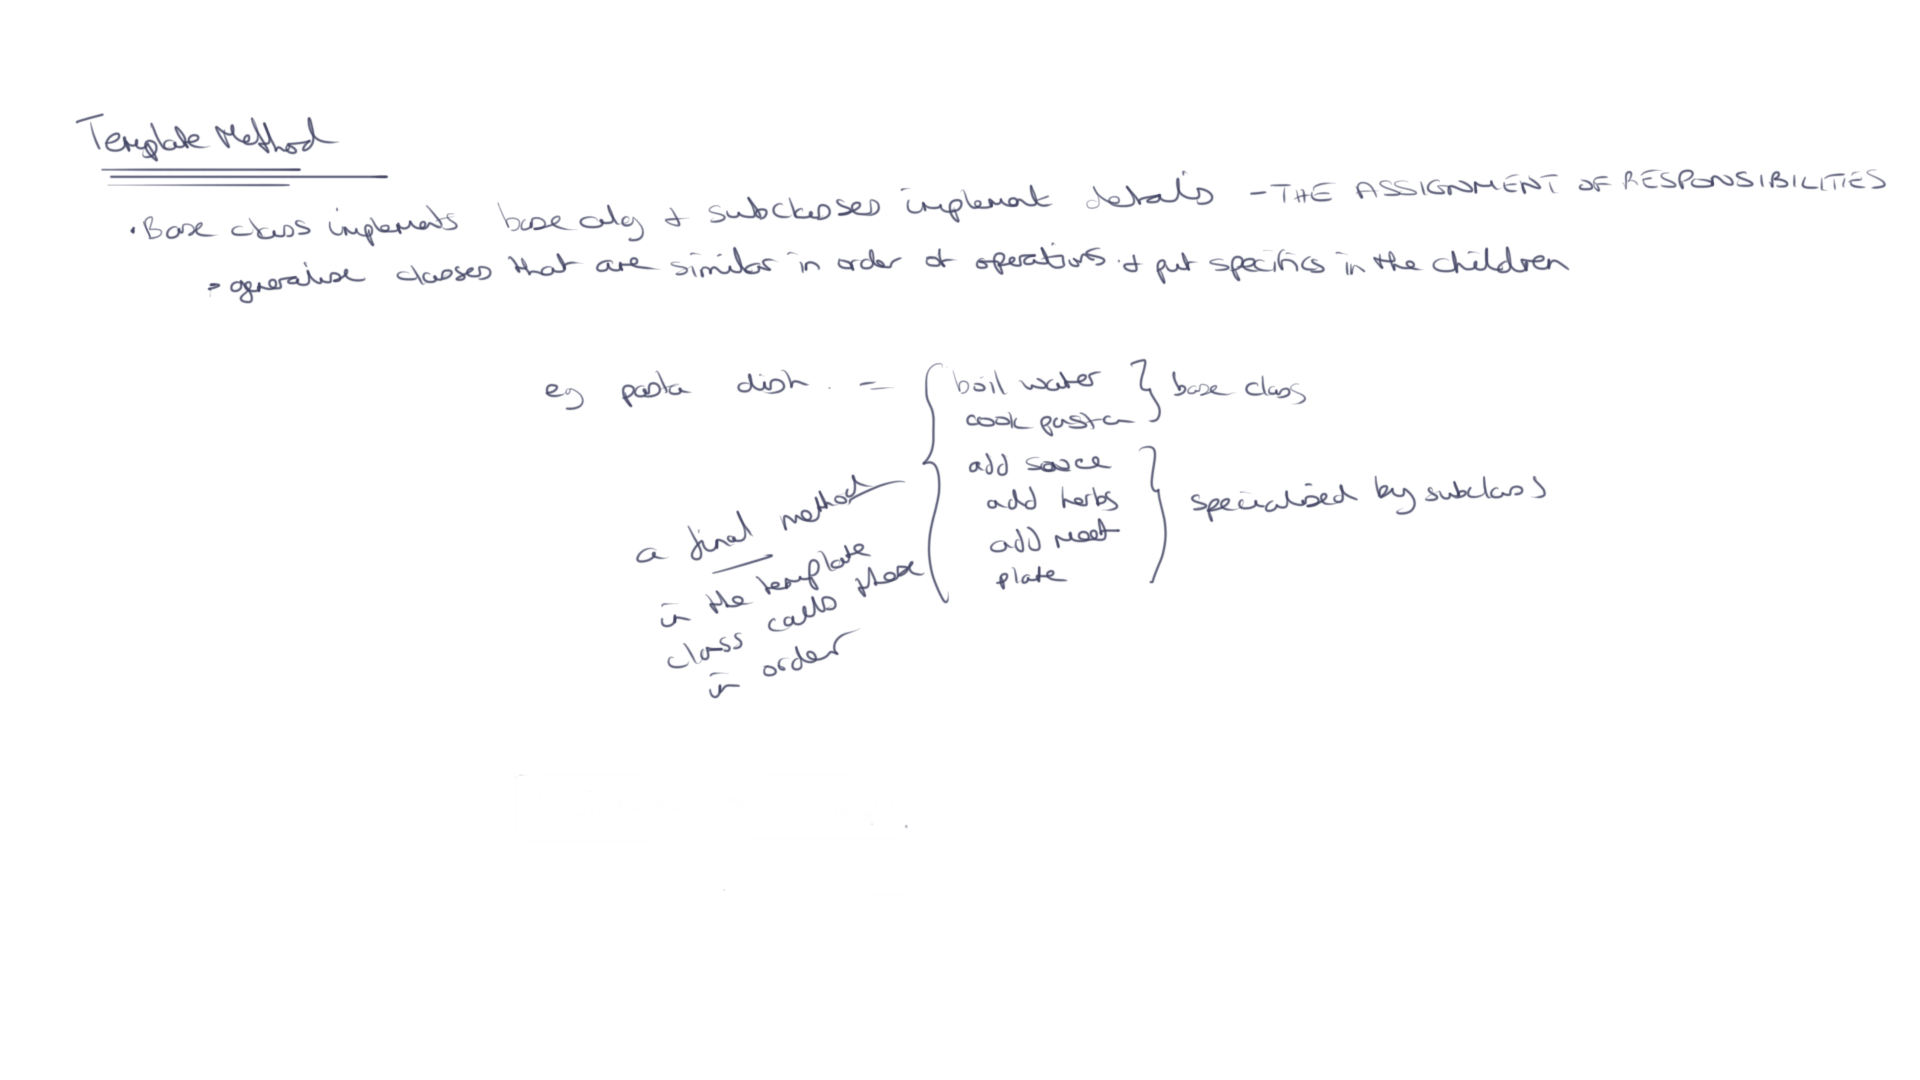 Template Method
• Base class implements base alg & subclasses implement details - THE ASSIGNMENT OF RESPONSIBILITIES
• generalise classes that are similar in order of operations & put specifics in the children
eg pasta dish = boil water
cook pasta
base class
add sauce
add herbs
add meat
plate
specialised by subclass
a final method
in the template
class calls these
in order